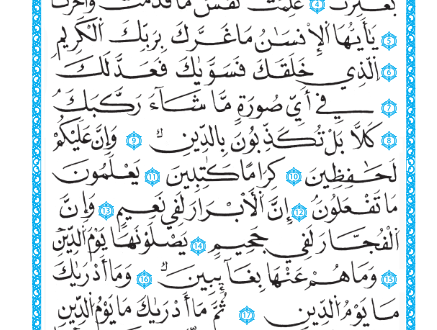 بُعْثِرَتْ ٤ عَلِمَتْ نَفْسٌ مَّا قَدَّمَتْ وَأَخَّرَتْ
٥ يَٰٓأَيُّهَا ٱلْإِنسَٰنُ مَا غَرَّكَ بِرَبِّكَ ٱلْكَرِيمِ
٦ ٱلَّذِي خَلَقَكَ فَسَوَّىٰكَ فَعَدَلَكَ
٧ فِيٓ أَيِّ صُورَةٍ مَّا شَآءَ رَكَّبَكَ
٨ كَلَّا بَلْ تُكَذِّبُونَ بِٱلدِّينِ ٩ وَإِنَّ عَلَيْكُمْ
لَحَٰفِظِينَ ١٠ كِرَامًا كَٰتِبِينَ ١١ يَعْلَمُونَ
مَا تَفْعَلُونَ ١٢ إِنَّ ٱلْأَبْرَارَ لَفِي نَعِيمٍ ١٣ وَإِنَّ
ٱلْفُجَّارَ لَفِي جَحِيمٍ ١٤ يَصْلَوْنَهَا يَوْمَ ٱلدِّينِ
١٥ وَمَا هُمْ عَنْهَا بِغَآئِبِينَ ١٦ وَمَآ أَدْرَىٰكَ
مَا يَوْمُ ٱلدِّينِ ١٧ ثُمَّ مَآ أَدْرَىٰكَ مَا يَوْمُ ٱلدِّينِ